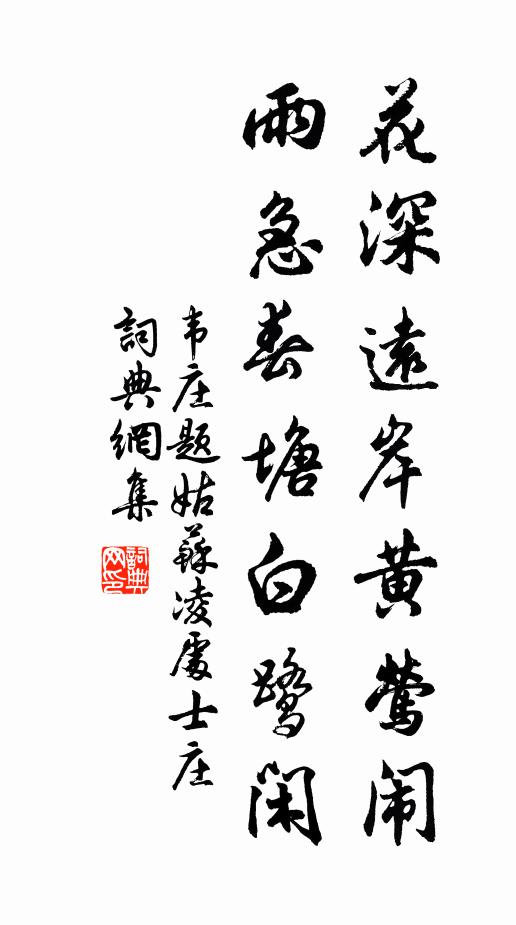 花深遠岸黄莺闹
雨急春塘白鹭闲
韦庄题姑蘇凌處士庄
詞典網集
詞典网印